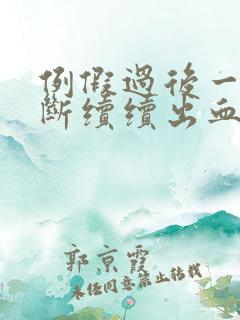 例假過後一
斷續續出血
郭京霞
未经同意禁止转载